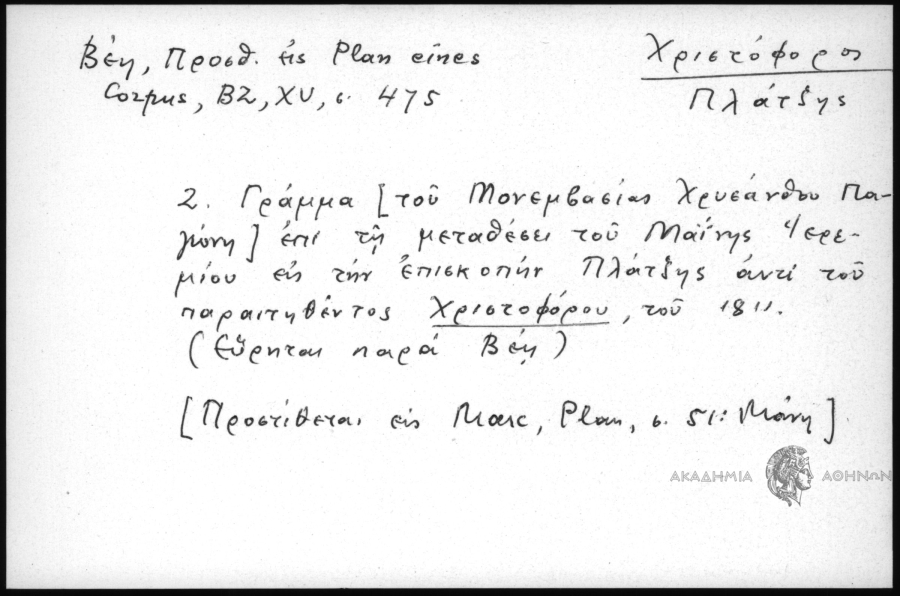 Βέη, Προσθ. εἰς Plan eines
Corpus, BZ, XV, σ. 475
Χριστόφορος
Πλάτζης
2. Γράμμα [τοῦ Μονεμβασίας Χρυσάνθου Πα-
γώνη] ἐπὶ τῇ μεταθέσει τοῦ Μαΐνης Ἱερε-
μίου εἰς τὴν ἐπισκοπὴν Πλάτζης ἀντὶ τοῦ
παραιτηθέντος Χριστοφόρου, τοῦ 1811.
(Εὕρηται παρὰ Βέῃ)
[Προστίθεται εἰς Marc, Plan, σ. 51: Μάνη]
ΑΚΑΔΗΜΙΑ ΑΘΗΝΩΝ